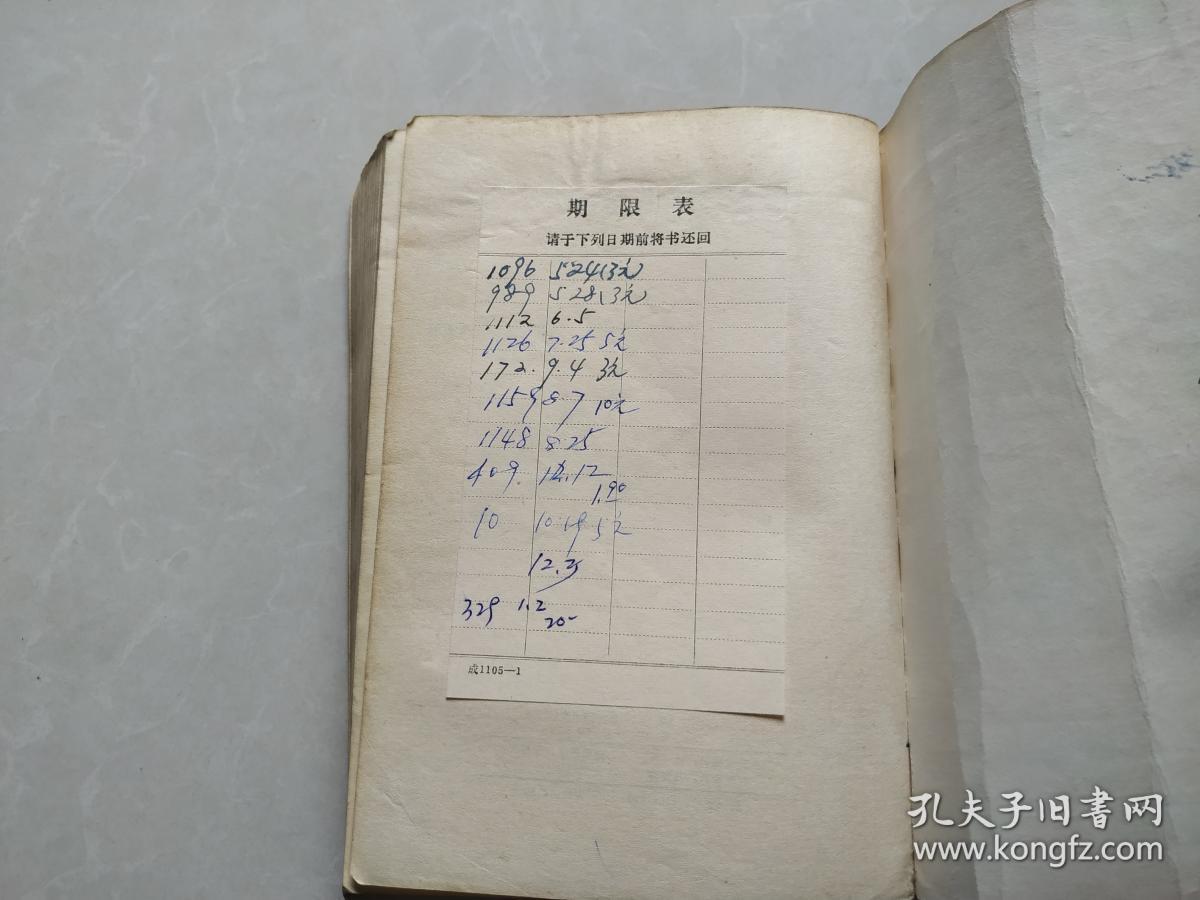 期 限 表
请于下列日期前将书还回
1096 5.24(3元)
989 5.28(3元)
1112 6.5
1126 7.25 5元
172. 9.4 3元
1159 8.7 10元
1148 8.25
409. 12
1.90
10 10.19 5元
12.
329 1.2
20
成1105—1
孔夫子旧書网
www.kongfz.com